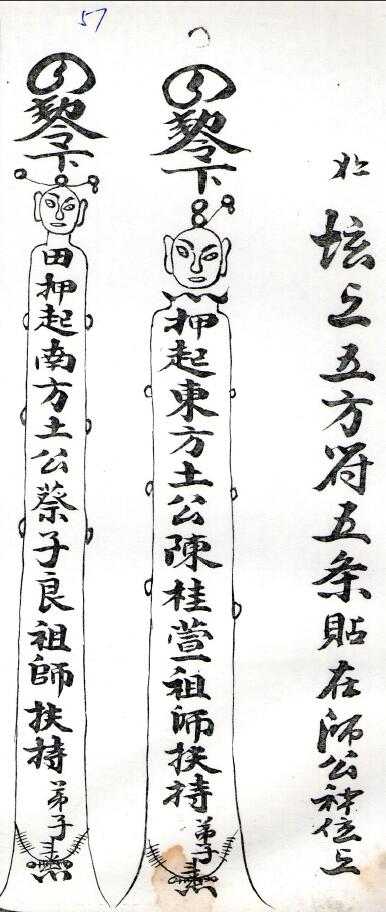 57
坛上五方符五条貼在师公神位上
勅令下
押起東方土公陳桂萱祖师扶持弟子
勅令下
田押起南方土公蔡子良祖師扶持弟子